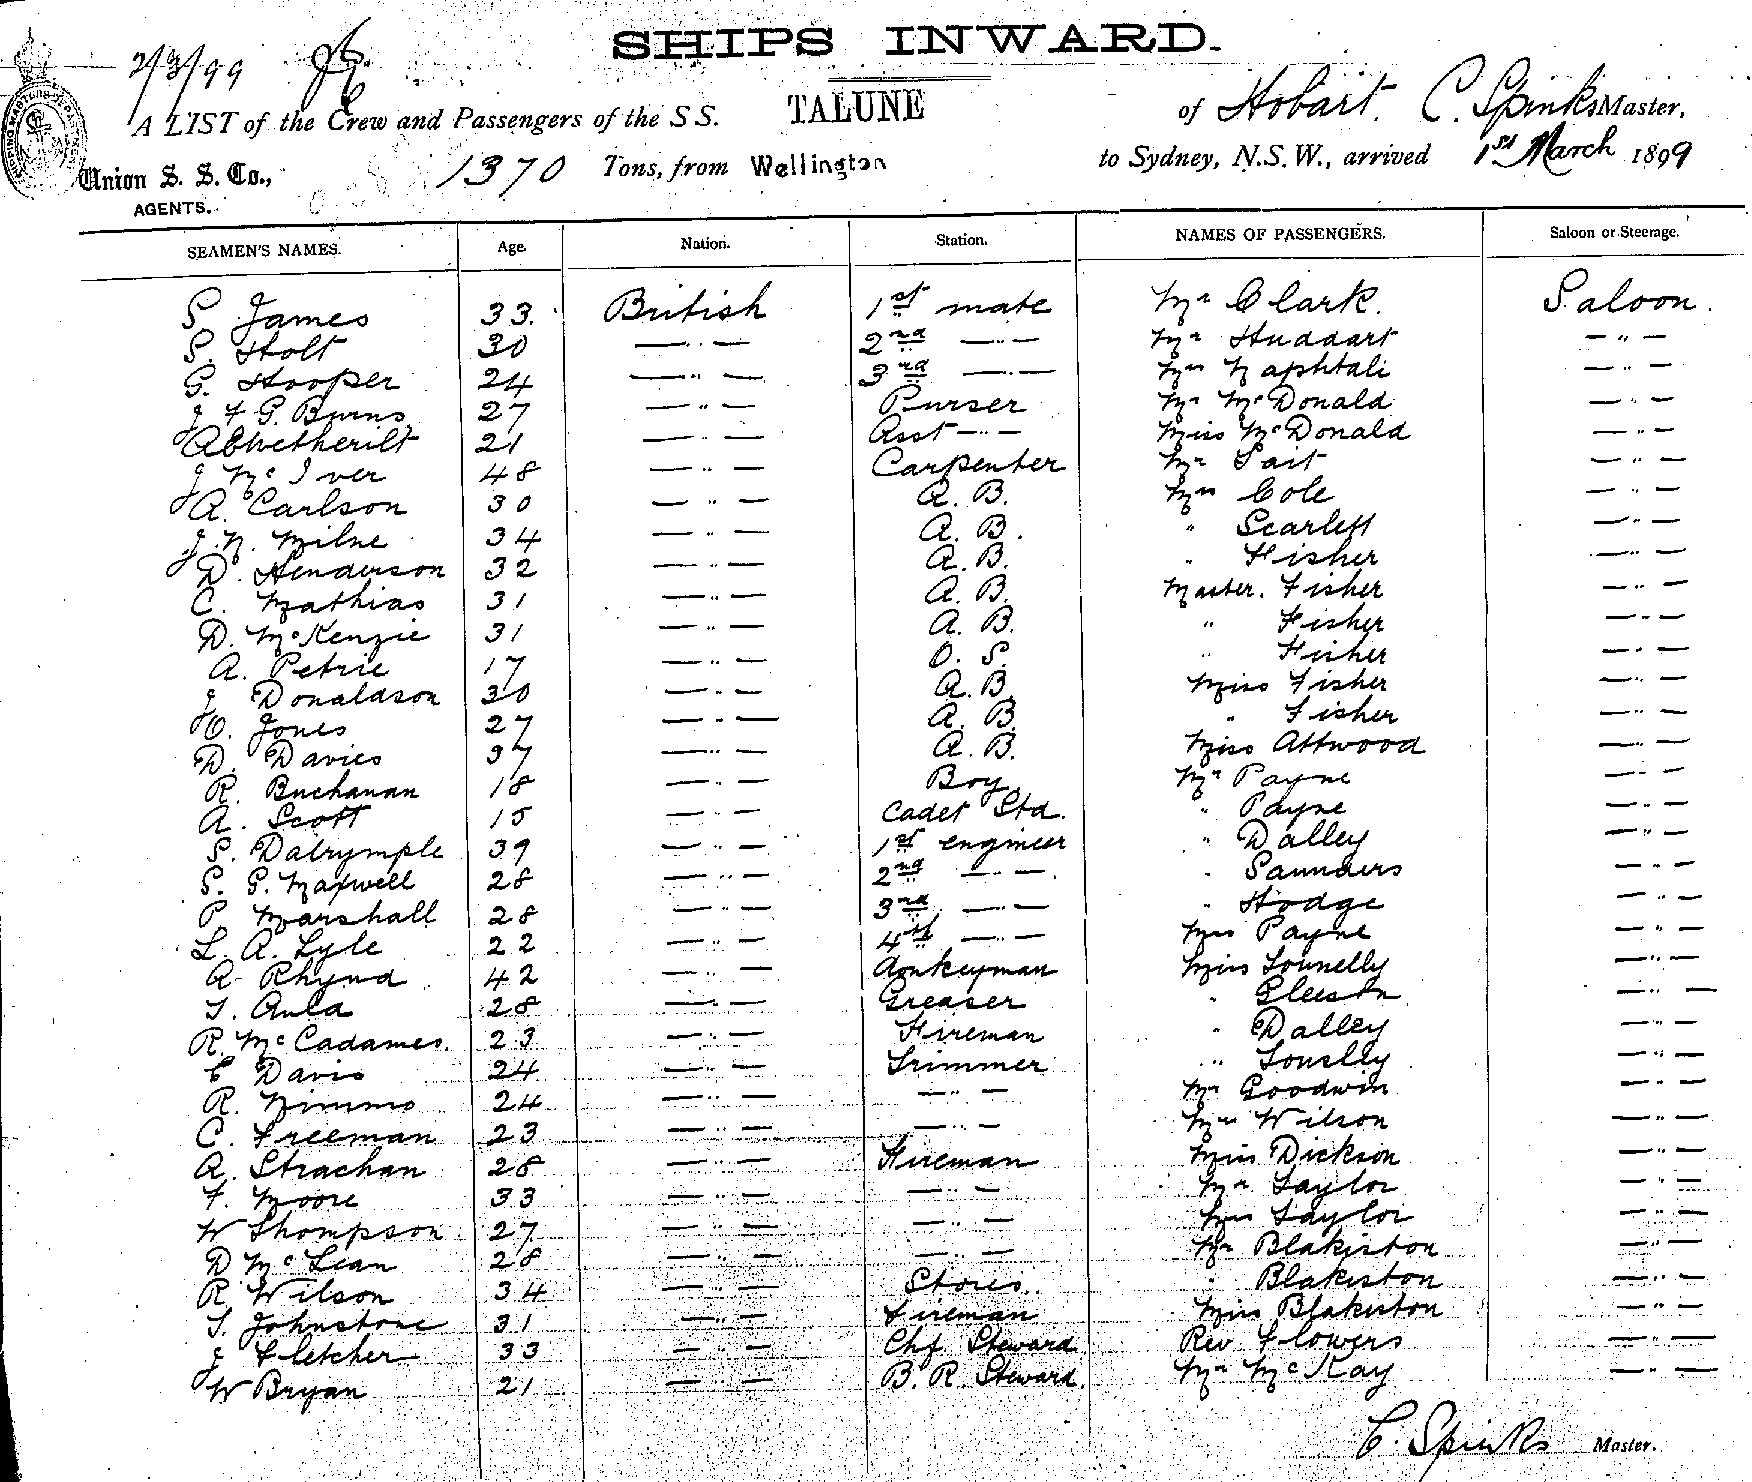 SHIPS INWARD.
2/3/99
A LIST of the Crew and Passengers of the S S. TALUNE of Hobart. C. Spinks Master,
Union S. S. Co., AGENTS. 1370 Tons, from Wellington to Sydney, N.S.W., arrived 1st March 1899
SEAMEN'S NAMES. Age. Nation. Station. NAMES OF PASSENGERS. Saloon or Steerage.
S. James 33. British 1st mate Mr Clark. Saloon.
S. Holt 30 — " — 2nd — " — Mr Huddart — " —
G. Hooper 24 — " — 3rd — " — Mrs Naphtali — " —
J F G. Burns 27 — " — Purser Mr McDonald — " —
A Wetherilt 21 — " — Asst — " — Miss McDonald — " —
J McIver 48 — " — Carpenter Mr Tait — " —
A. Carlson 30 — " — A. B. Mrs Cole — " —
J. N. Milne 34 — " — A. B. " Scarlett — " —
D. Henderson 32 — " — A. B. " Fisher — " —
C. Mathias 31 — " — A. B. Master. Fisher — " —
D. McKenzie 31 — " — A. B. " Fisher — " —
A. Petrie 17 — " — O. S. " Fisher — " —
J Donaldson 30 — " — A. B. Miss Fisher — " —
O. Jones 27 — " — A. B. " Fisher — " —
D. Davies 37 — " — A. B. Miss Attwood — " —
R. Buchanan 18 — " — Boy Mr Payne — " —
A. Scott 15 — " — Cadet Std. " Payne — " —
S. Dalrymple 39 — " — 1st engineer " Dalley — " —
S. G. Maxwell 28 — " — 2nd — " — " Saunders — " —
P Marshall 28 — " — 3rd — " — " Hodge — " —
L. A. Lyle 22 — " — 4th — " — Mrs Payne — " —
A Rhynd 42 — " — Donkeyman Miss — " —
T. Auld 28 — " — Greaser " Gleeson — " —
R. McCadames. 23 — " — Fireman " Dalley — " —
C Davis 24 — " — Trimmer " — " —
R. Nimmo 24 — " — — " — Mr Goodwin — " —
C. Freeman 23 — " — — " — Mrs Wilson — " —
A. Strachan 28 — " — Fireman Miss Dickson — " —
F. Moore 33 — " — — " — Mr Taylor — " —
W Thompson 27 — " — — " — Mrs Taylor — " —
D McLean 28 — " — — " — Mr Blakiston — " —
R Wilson 34 — " — Stores. " Blakiston — " —
T. Johnstone 31 — " — Fireman Miss Blakiston — " —
J Fletcher 33 — " — Chf Steward Rev Flowers — " —
W Bryan 21 — " — B. R. Steward. Mr McKay — " —
C. Spinks Master.